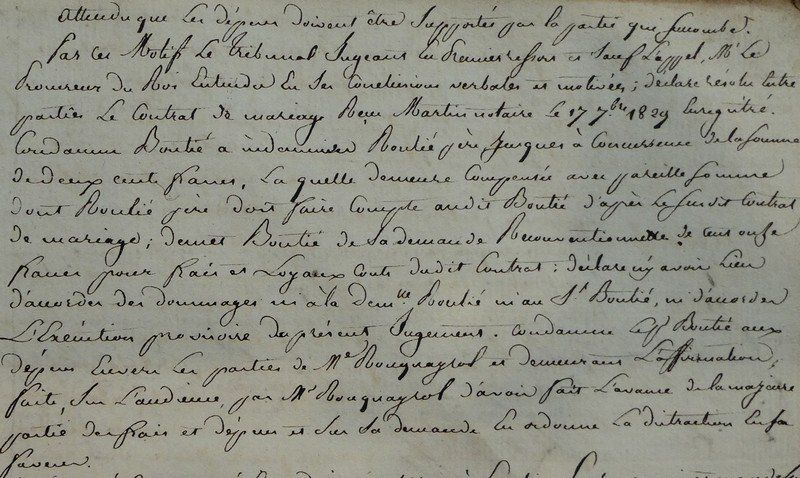 attendu que les dépens doivent être supportés par la partie qui succombe.
Par ces Motifs Le tribunal Jugeant En Premier ressort et sauf L'appel, Mr Le
Procureur du Roi Entendu En ses Conclusions verbales et motivées; déclare résolu Entre
parties Le Contrat de mariage Reçu Martin notaire Le 17 7.bre 1829 Enregistré.
Condamne Boutié a indemniser Roulié père Jusques à Concurrence de la somme
de deux cents francs, La quelle demeure Compensée avec pareille somme
dont Roulié père doit faire Compte audit Boutié d'après Le susdit Contrat
de mariage; demet Boutié de sa demande Reconventionnelle de cent onze
francs pour frais et Loyaux Couts dudit Contrat: déclare n'y avoir Lieu
d'accorder des dommages ni à la demlle Roulié ni au Sr Boutié, ni d'accorder
L'Exécution provisoire du présent Jugement. Condamne Boutié aux
dépens Envers Les parties de Me Rouquayrol et demeurant L'affirmation
faite, Sur L'audience, par Me Rouquayrol d'avoir fait L'avance de la majeure
partie des frais et dépens et sur sa demande En ordonne La distraction En sa
faveur.